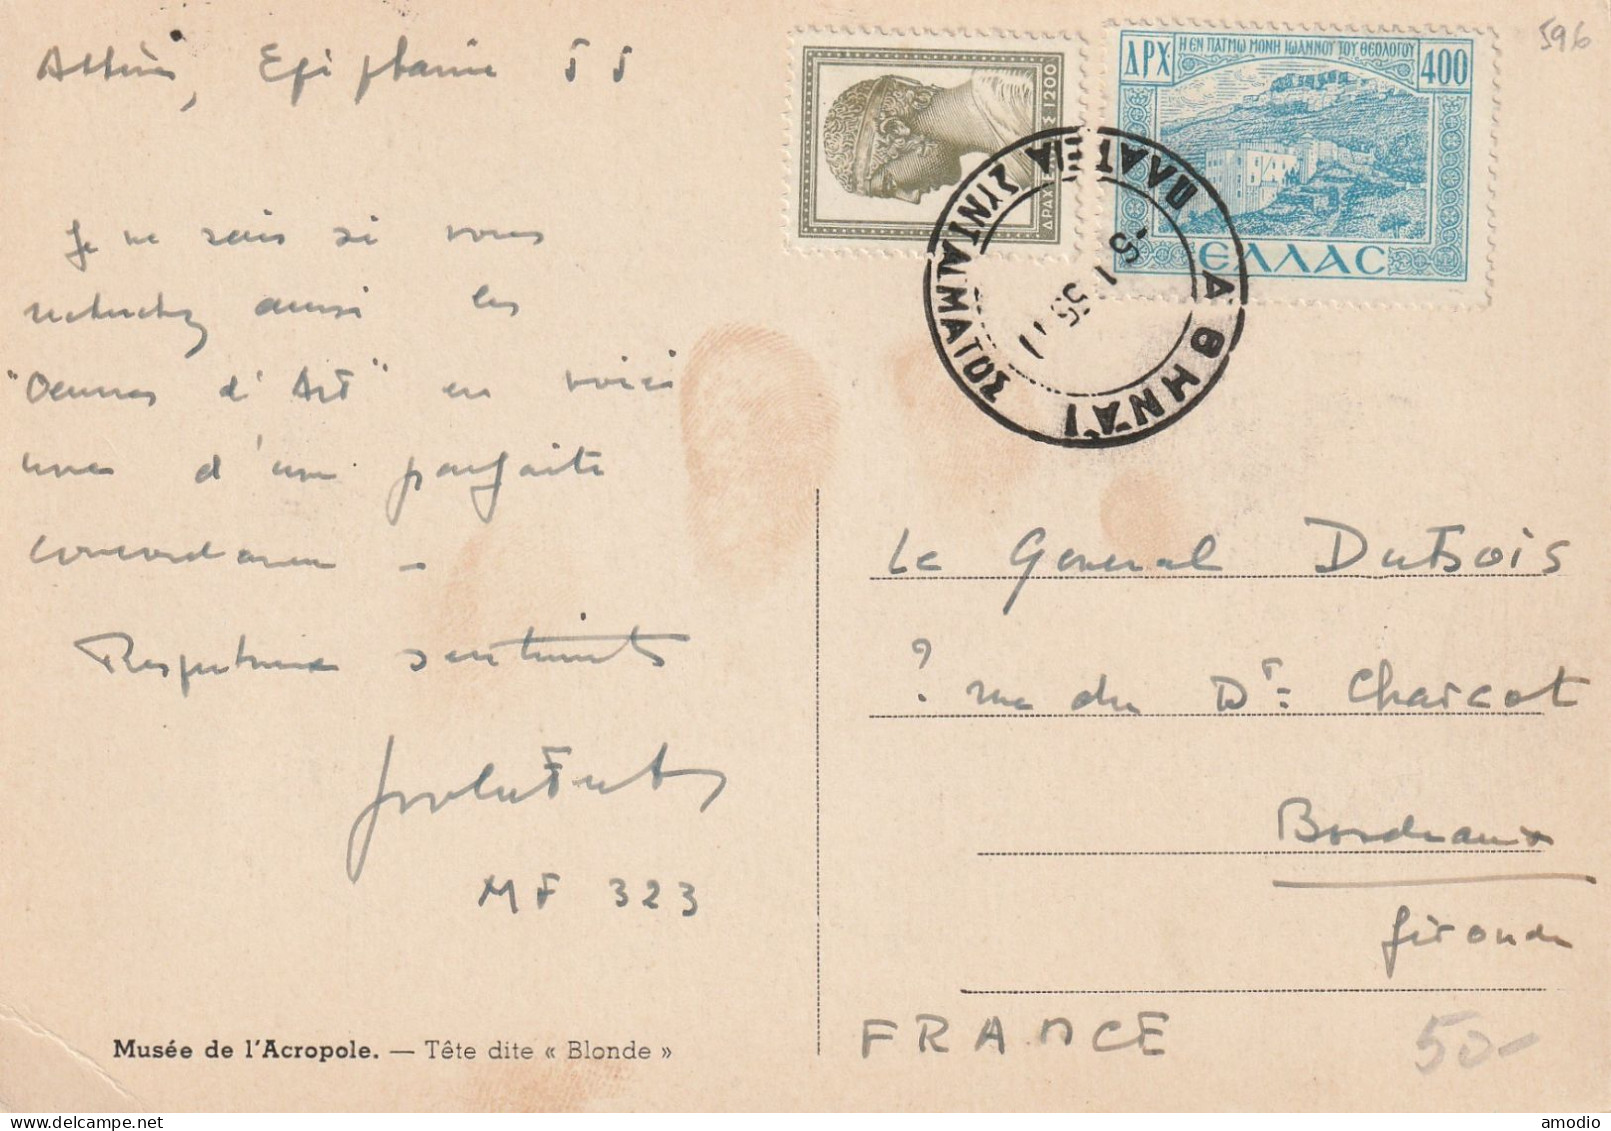 Athènes, Epiphanie 55
Je ne sais si vous
recherchez aussi les
"Oeuvres d'Art" en voici
une d'une parfaite
concordance -
Respectueux sentiments
MF 323
Musée de l'Acropole. — Tête dite « Blonde »
ΔΡΑΧΜΑΣ 1200
Η ΕΝ ΠΑΤΜΩ ΜΟΝΗ ΙΩΑΝΝΟΥ ΤΟΥ ΘΕΟΛΟΓΟΥ
ΔΡΧ 400
ΕΛΛΑC
ΑΘΗΝΑΙ
ΠΛΑΤΕΙΑ ΣΥΝΤΑΓΜΑΤΟΣ
596
Le General DuBois
? rue du Dr= Charcot
Bordeaux
Gironde
FRANCE
50-
amodio